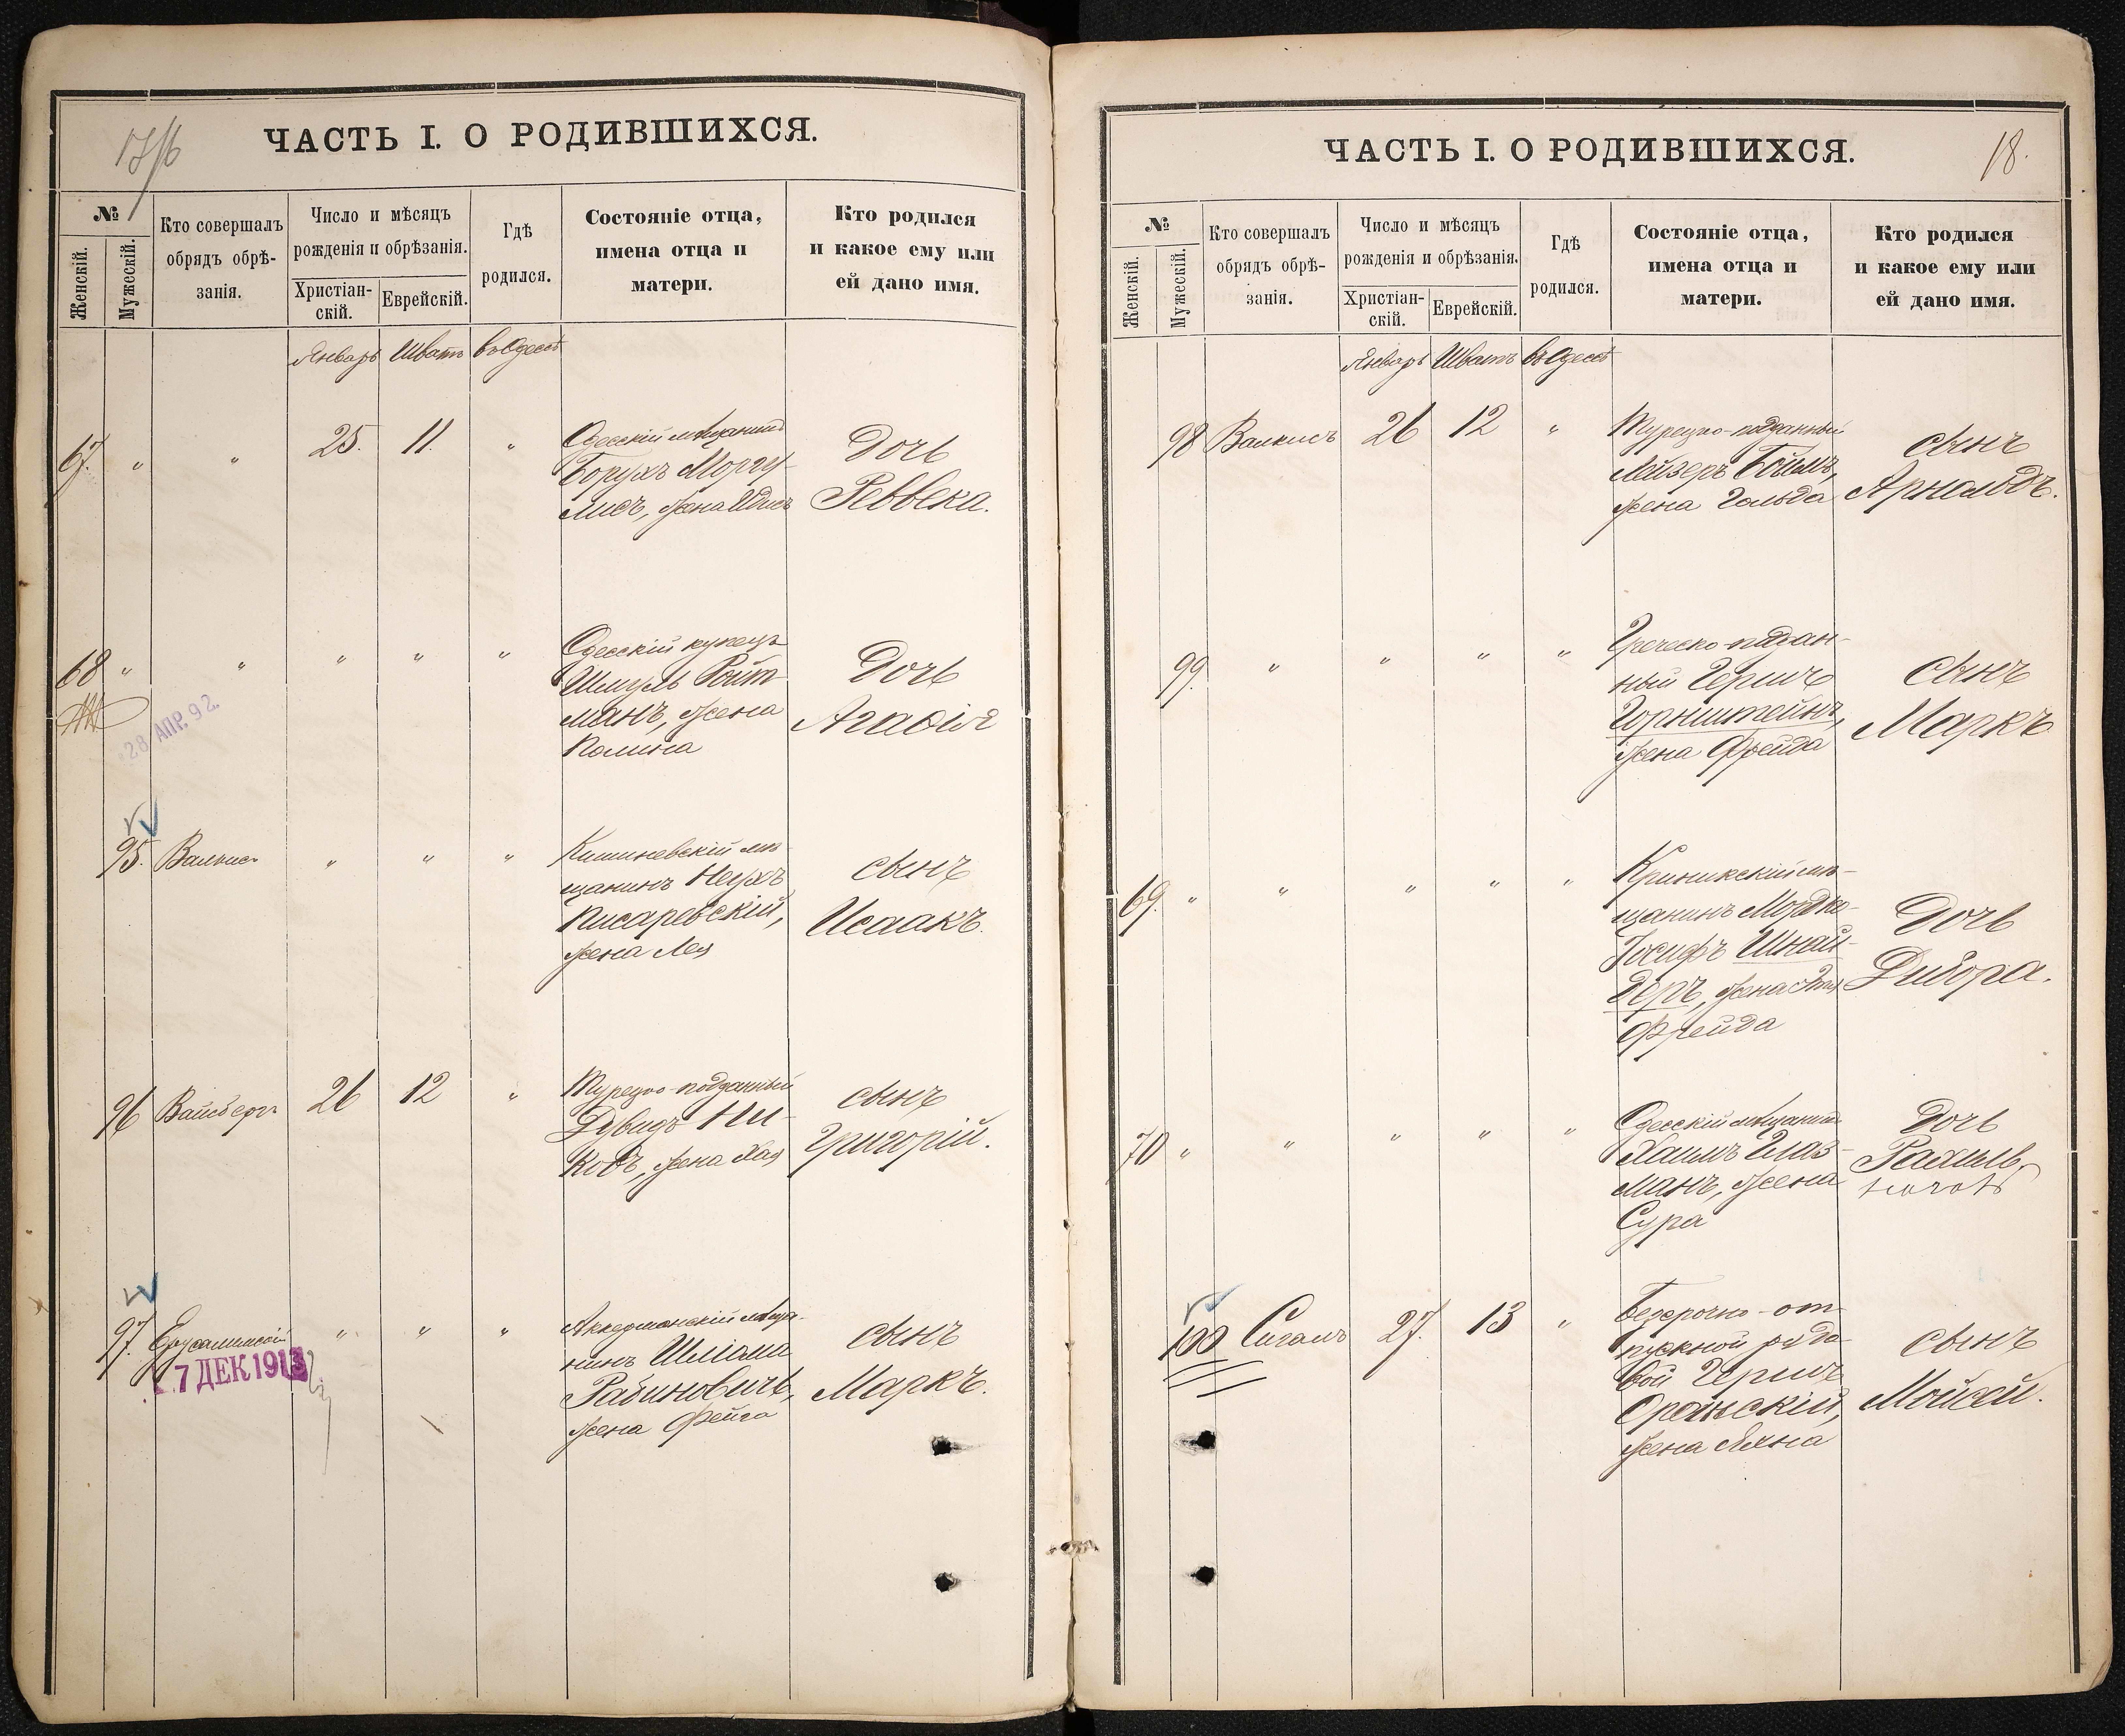 17/16
ЧАСТЬ I. О РОДИВШИХСЯ.
№
Женскій.
Мужескій.
Кто совершалъ
обрядъ обрѣ-
занія.
Число и мѣсяцъ
рожденія и обрѣзанія.
Христіан-
скій.
Еврейскій.
Гдѣ
родился.
Состояніе отца,
имена отца и
матери.
Кто родился
и какое ему или
ей дано имя.
Январь Шватъ въ Одессѣ
67. " " 25. 11. "
Одесскій мѣщанинъ
Борухъ Моргу-
лисъ, жена
Дочь
Реввека.
68 " " " " "
28 АПР. 92.
Одесскій купецъ
Шмуль Ройт-
манъ, жена
Полина
Дочь
Агафія
95. Валкис " " "
Кишиневскій мѣ-
щанинъ Нухъ
Писаревскій,
жена Лея
сынъ
Исаакъ.
96 Вайсбергъ 26 12 "
Турецко-подданный
Дувидъ
ковъ, жена Хая
сынъ
Григорій.
97. Ерусалимскій " " "
7 ДЕК 1913
Аккерманскій мѣща-
нинъ Шліома
Рабиновичъ,
жена Фейга
сынъ
Маркъ.
ЧАСТЬ I. О РОДИВШИХСЯ.
18.
№
Женскій.
Мужескій.
Кто совершалъ
обрядъ обрѣ-
занія.
Число и мѣсяцъ
рожденія и обрѣзанія.
Христіан-
скій.
Еврейскій.
Гдѣ
родился.
Состояніе отца,
имена отца и
матери.
Кто родился
и какое ему или
ей дано имя.
Январь Шватъ въ Одессѣ
98 Валкисъ 26 12 "
Турецко-подданный
Лейзеръ Боймъ,
жена Гольда
сынъ
Арнольдъ.
99. " " " "
Греческо-поддан-
ный Гершъ
Горнштейнъ,
жена Фрейда
сынъ
Маркъ
69. " " " " "
Криникскій мѣ-
щанинъ Мордко-
Іосифъ Шнай-
деръ, жена
Фрейда
Дочь
Двойра.
70 " " " " "
Одесскій мѣщанинъ
Хаимъ Глаз-
манъ, жена
Сура
Дочь
Рахиль
100 Сигалъ 27. 13 "
Безсрочно-от-
пускной рядо-
вой Гершъ
Оранскій,
жена
сынъ
Мойсей.